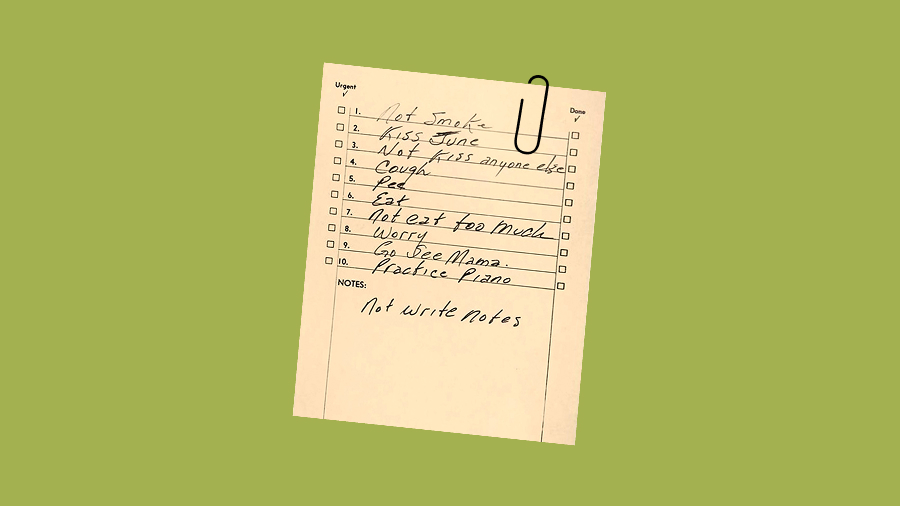 Urgent
Done
1. Not Smoke
2. Kiss June
3. Not Kiss anyone else
4. Cough
5. Pee
6. Eat
7. Not eat too much
8. Worry
9. Go See Mama.
10. Practice Piano
NOTES:
Not write notes